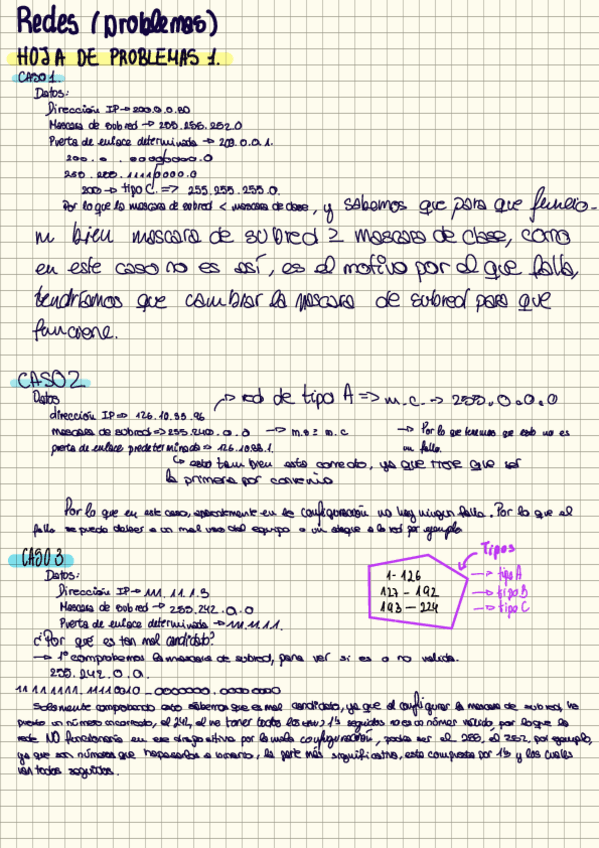 Redes (problemas)
HOJA DE PROBLEMAS 1.
CASO 1.
Datos:
Dirección IP → 200.0.0.80
Mascara de subred → 255.255.252.0
Puerta de enlace determinada → 200.0.0.1.
200.0.00000000.0
250.200.11110000.0
200 → tipo C. => 255.255.255.0.
Por lo que la mascara de subred < mascara de clase, y sabemos que para que funcio-
ne bien mascara de subred ≥ mascara de clase, como
en este caso no es así, es el motivo por el que falla,
tendríamos que cambiar la mascara de subred para que
funcione.
CASO 2
Datos
→ red de tipo A => m.c. → 255.0.0.0
dirección IP => 126.10.55.96
mascara de subred => 255.240.0.0 → m.s ≥ m.c → Por lo que tenemos que esto no es
un fallo.
puerta de enlace predeterminado => 126.10.88.1.
→ esto tambien esta correcto, ya que tiene que ser
la primera por convenio
Por lo que en este caso, aparentemente en la configuración no hay ningun fallo. Por lo que el
fallo se puede deber a un mal uso del equipo o un ataque a la red por ejemplo
CASO 3
Datos:
Dirección IP → 111.11.1.3
Mascara de subred → 255.242.0.0
Puerta de enlace determinada → 111.11.1.1.
Tipos
1-126 → tipo A
127 - 192 → tipo B
193 - 224 → tipo C
¿Por qué es tan mal candidato?
→ 1º comprobamos la mascara de subred, para ver si es o no valida.
255.242.0.0.
11111111.11110010_0000000.00000000
Solamente comprobando esto sabemos que es mal candidato, ya que al configurar la mascara de subred, ha
puesto un número incorrecto, el 242, al no tener todos los 1s seguidos no es un número válido, por lo que la
rede NO funcionaria en ese dispositivo por la mala configuración, podria ser el 255, el 252, por ejemplo,
ya que son números que pasados a binario, la parte más significativa, esta compuesta por 1s y los cuales
van todos seguidos.